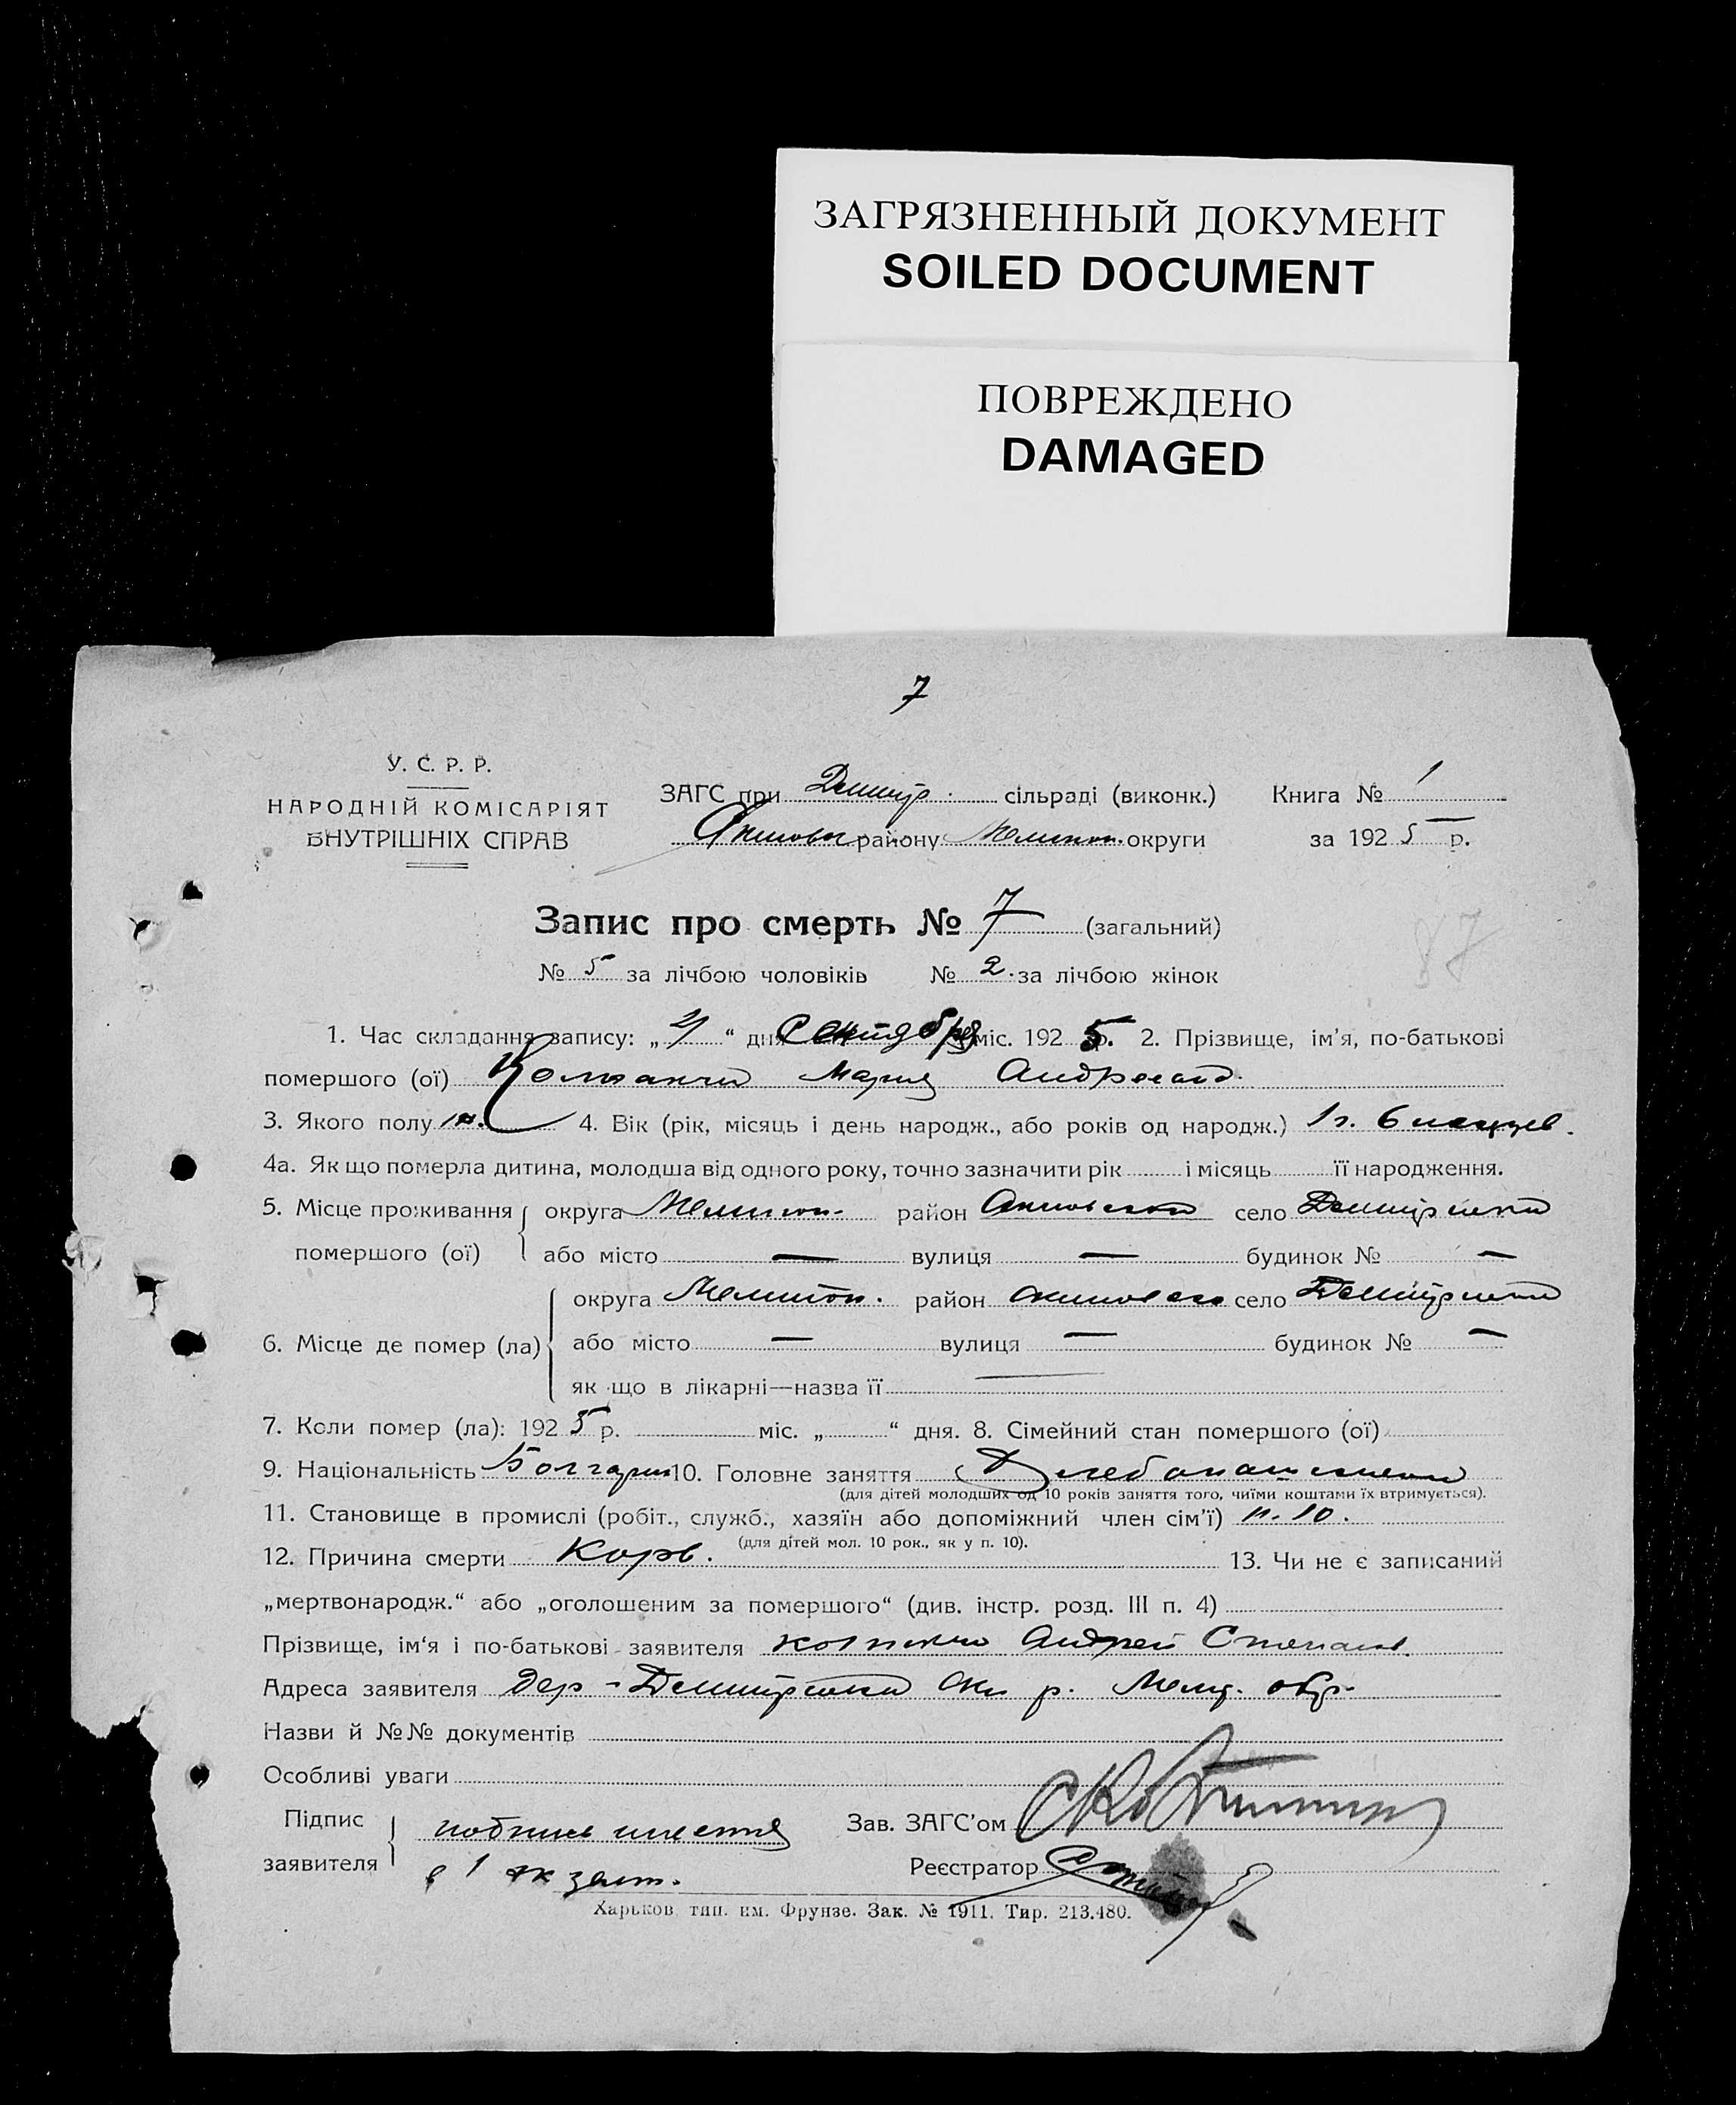 ЗАГРЯЗНЕННЫЙ ДОКУМЕНТ
SOILED DOCUMENT
ПОВРЕЖДЕНО
DAMAGED
7
У. С. Р. Р.
НАРОДНІЙ КОМІСАРІЯТ
ВНУТРІШНІХ СПРАВ
ЗАГС при сільраді (виконк.) Книга № 1
району округи за 1925 р.
Запис про смерть № 7 (загальний)
87
№ 5 за лічбою чоловіків № 2. за лічбою жінок
1. Час складання запису: „ “ дня Сентября міс. 1925 р. 2. Прізвище, ім'я, по-батькові
помершого (ої) Мария
3. Якого полу 4. Вік (рік, місяць і день народж., або років од народж.) 1 г. 6 месяцев.
4а. Як що померла дитина, молодша від одного року, точно зазначити рік і місяць її народження.
5. Місце проживання помершого (ої) округа Мелитоп. район село
або місто — вулиця — будинок № —
6. Місце де помер (ла) округа Мелитоп. район село
або місто — вулиця — будинок № —
як що в лікарні—назва її —
7. Коли помер (ла): 1925 р. міс. „ “ дня. 8. Сімейний стан помершого (ої)
9. Національність 10. Головне заняття
(для дітей молодших од 10 років заняття того, чиїми коштами їх втримується).
11. Становище в промислі (робіт., служб., хазяїн або допоміжний член сім'ї) п. 10.
(для дітей мол. 10 рок., як у п. 10).
12. Причина смерти Корь. 13. Чи не є записаний
„мертвонародж.“ або „оголошеним за помершого“ (див. інстр. розд. III п. 4)
Прізвище, ім'я і по-батькові заявителя Андрей Степанов.
Адреса заявителя дер - Ак р. Мелит. окр.
Назви й №№ документів
Особливі уваги
Підпис заявителя подпись имеется
в 1 экземп.
Зав. ЗАГС'ом
Реєстратор
Харьков, тип. им. Фрунзе. Зак. № 1911. Тир. 213.480.